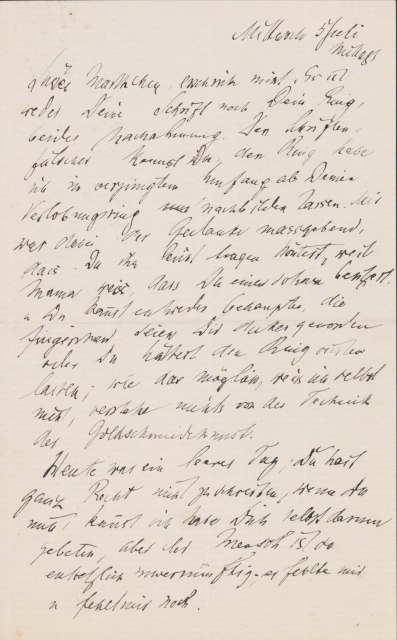 Mittwoch 5 Juli
Mittags
Süßes Marthchen, erschrick nicht. Es ist
weder Deine Schrift noch Dein Ring,
beides Nachahmung. Den Schriften-
fälscher kennst Du, den Ring habe
ich in verjüngtem Umfang als Deinen
Verlobungsring nachbilden lassen. Mir
war dabei der Gedanke massgebend,
dass Du ihn leicht tragen könntest, weil
Mama weiss, dass Du einen solchen besitzest.
u Du kannst entweder behaupten, die
Finger seien Dir dicker geworden
oder Du hättest den Ring
lassen; wie das möglich, weiss ich selbst
nicht, verstehe nichts von der Technik
der Goldschmiedekunst.
Heute war ein leerer Tag; Du hast
ganz Recht nicht zu schreiben, wenn Du
nicht kannst ich habe Dich selbst darum
gebeten, aber der Mensch ist so
entsetzlich unvernünftig, es fehlte mir
u fehlt mir noch.